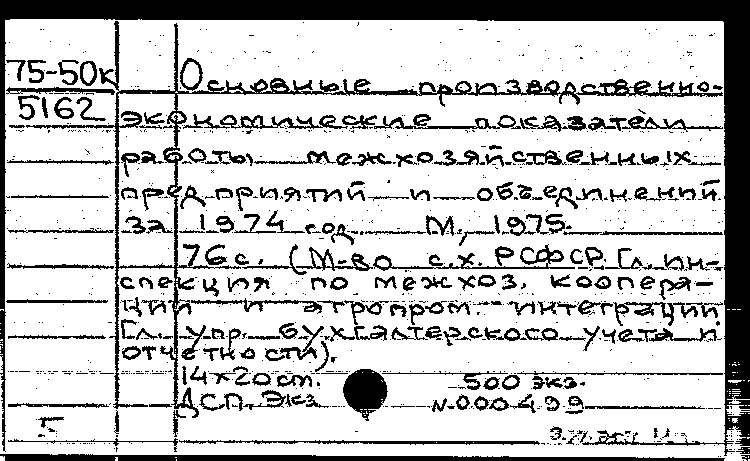 75-50к
5162
Основные производственно-
экономические показатели
работы межхозяйственных
предприятий и объединений
за 1974 год. М., 1975.
76 с. (М-во с.х. РСФСР. Гл. ин-
спекция по межхоз. коопера-
ции и агропром. интеграции.
Гл. упр. бухгалтерского учета и
отчетности).
14х20 см. 500 экз.
ДСП. Экз. N.000499